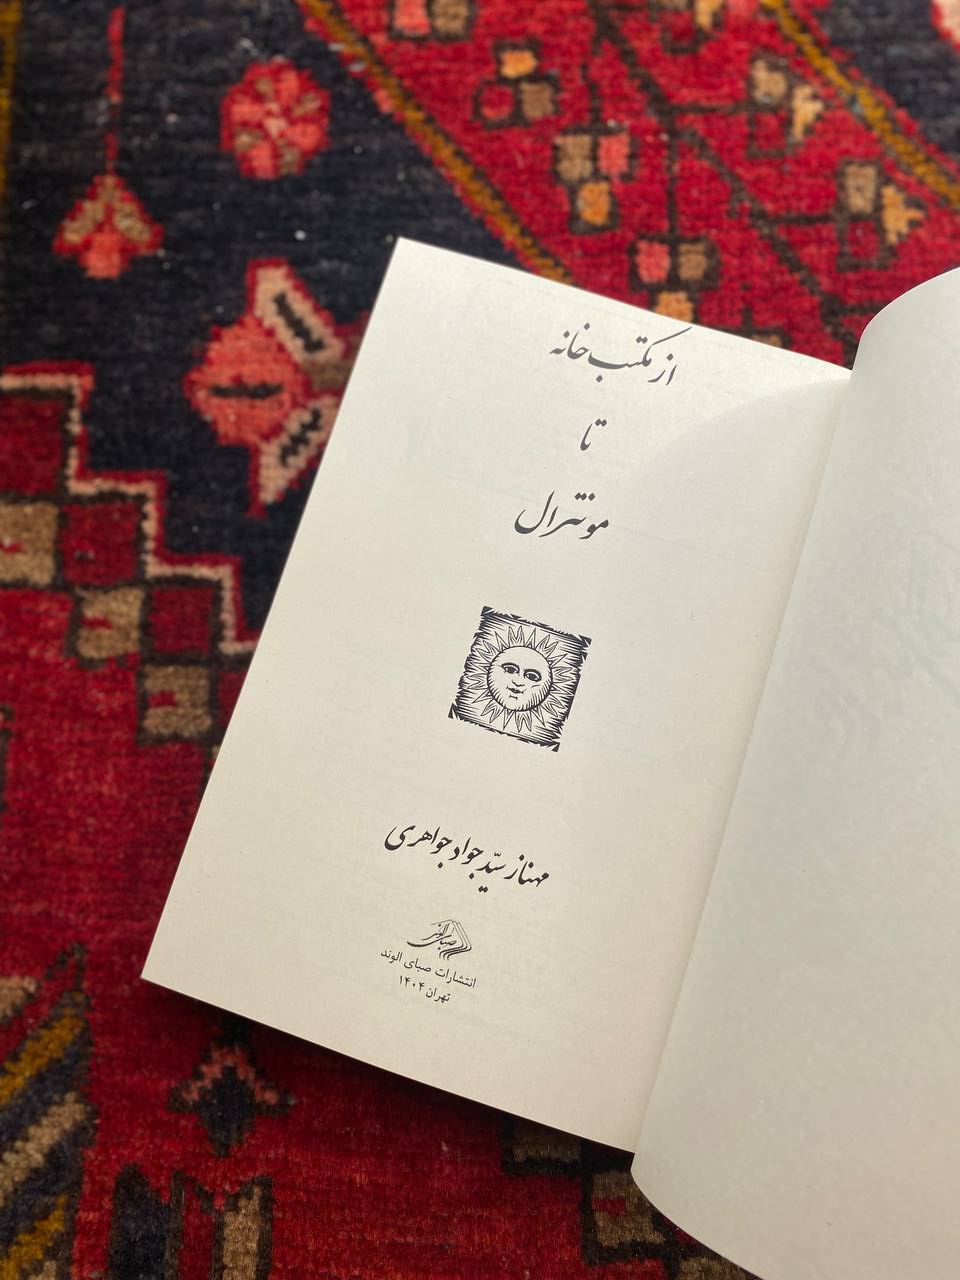 از مکتب‌خانه
تا
مونترال
مهناز سیّد جواد جواهری
صبای الوند
انتشارات صبای الوند
تهران ۱۴۰۴